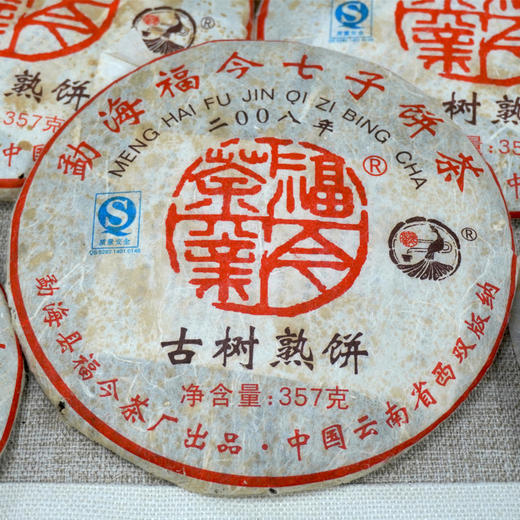 勐海福今七子饼茶
MENG HAI FU JIN QI ZI BING CHA
二00八年
福今茶業
®
®
质量安全
QS 5280 1401 0145
古树熟饼
净含量: 357克
勐海县福今茶厂出品·中国云南省西双版纳
熟饼
357克
中国
®
树熟饼
量: 357